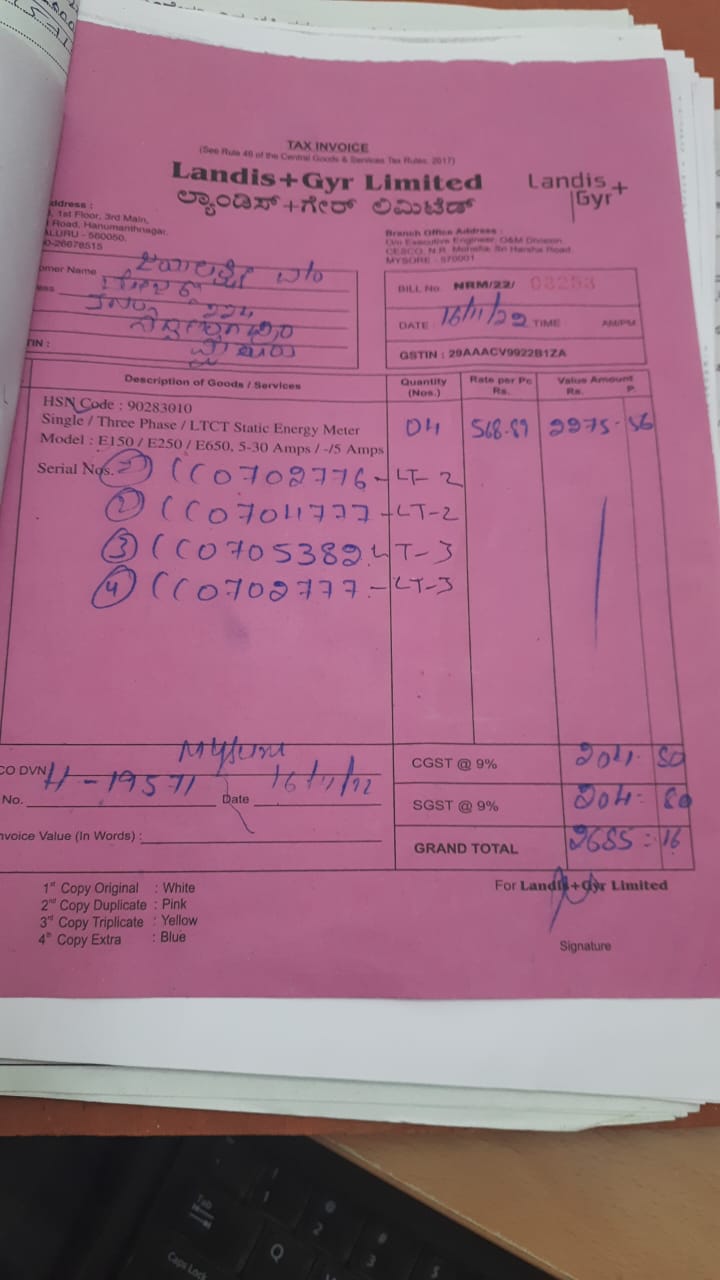 TAX INVOICE
(See Rule 46 of the Central Goods & Services Tax Rules, 2017)
Landis+Gyr Limited
ಲ್ಯಾಂಡಿಸ್+ಗೇರ್ ಲಿಮಿಟೆಡ್
Landis+
Gyr
ddress :
, 1st Floor, 3rd Main,
Road, Hanumanthnagar,
ALURU - 560050.
0-26678515
Branch Office Address :
O/o Executive Engineer, O&M Division
CESCO, N.R. Mohalla, Sri Harsha Road
MYSORE - 570001
omer Name
ess
224
TIN :
BILL No. NRM/22/ 03253
DATE : 16/11/22 TIME AM/PM
GSTIN : 29AAACV9922B1ZA
Description of Goods / Services Quantity (Nos.) Rate per Pc Rs. Value Amount Rs. P.
HSN Code : 90283010
Single / Three Phase / LTCT Static Energy Meter 04 568.89 2275-56
Model : E150 / E250 / E650, 5-30 Amps / -/5 Amps
Serial Nos. CC0702776-LT-2
2 CC0704777-LT-2
3 CC0705382-LT-3
4 CC0702777-LT-3
CO DVN Mysuru
H-19571 16/11/22
No. Date
nvoice Value (In Words) :
CGST @ 9% 204.80
SGST @ 9% 204-80
GRAND TOTAL 2685=16
1st Copy Original : White
2nd Copy Duplicate : Pink
3rd Copy Triplicate : Yellow
4th Copy Extra : Blue
For Landis+Gyr Limited
Signature
Tab
1
2
3
Q
Caps Lock